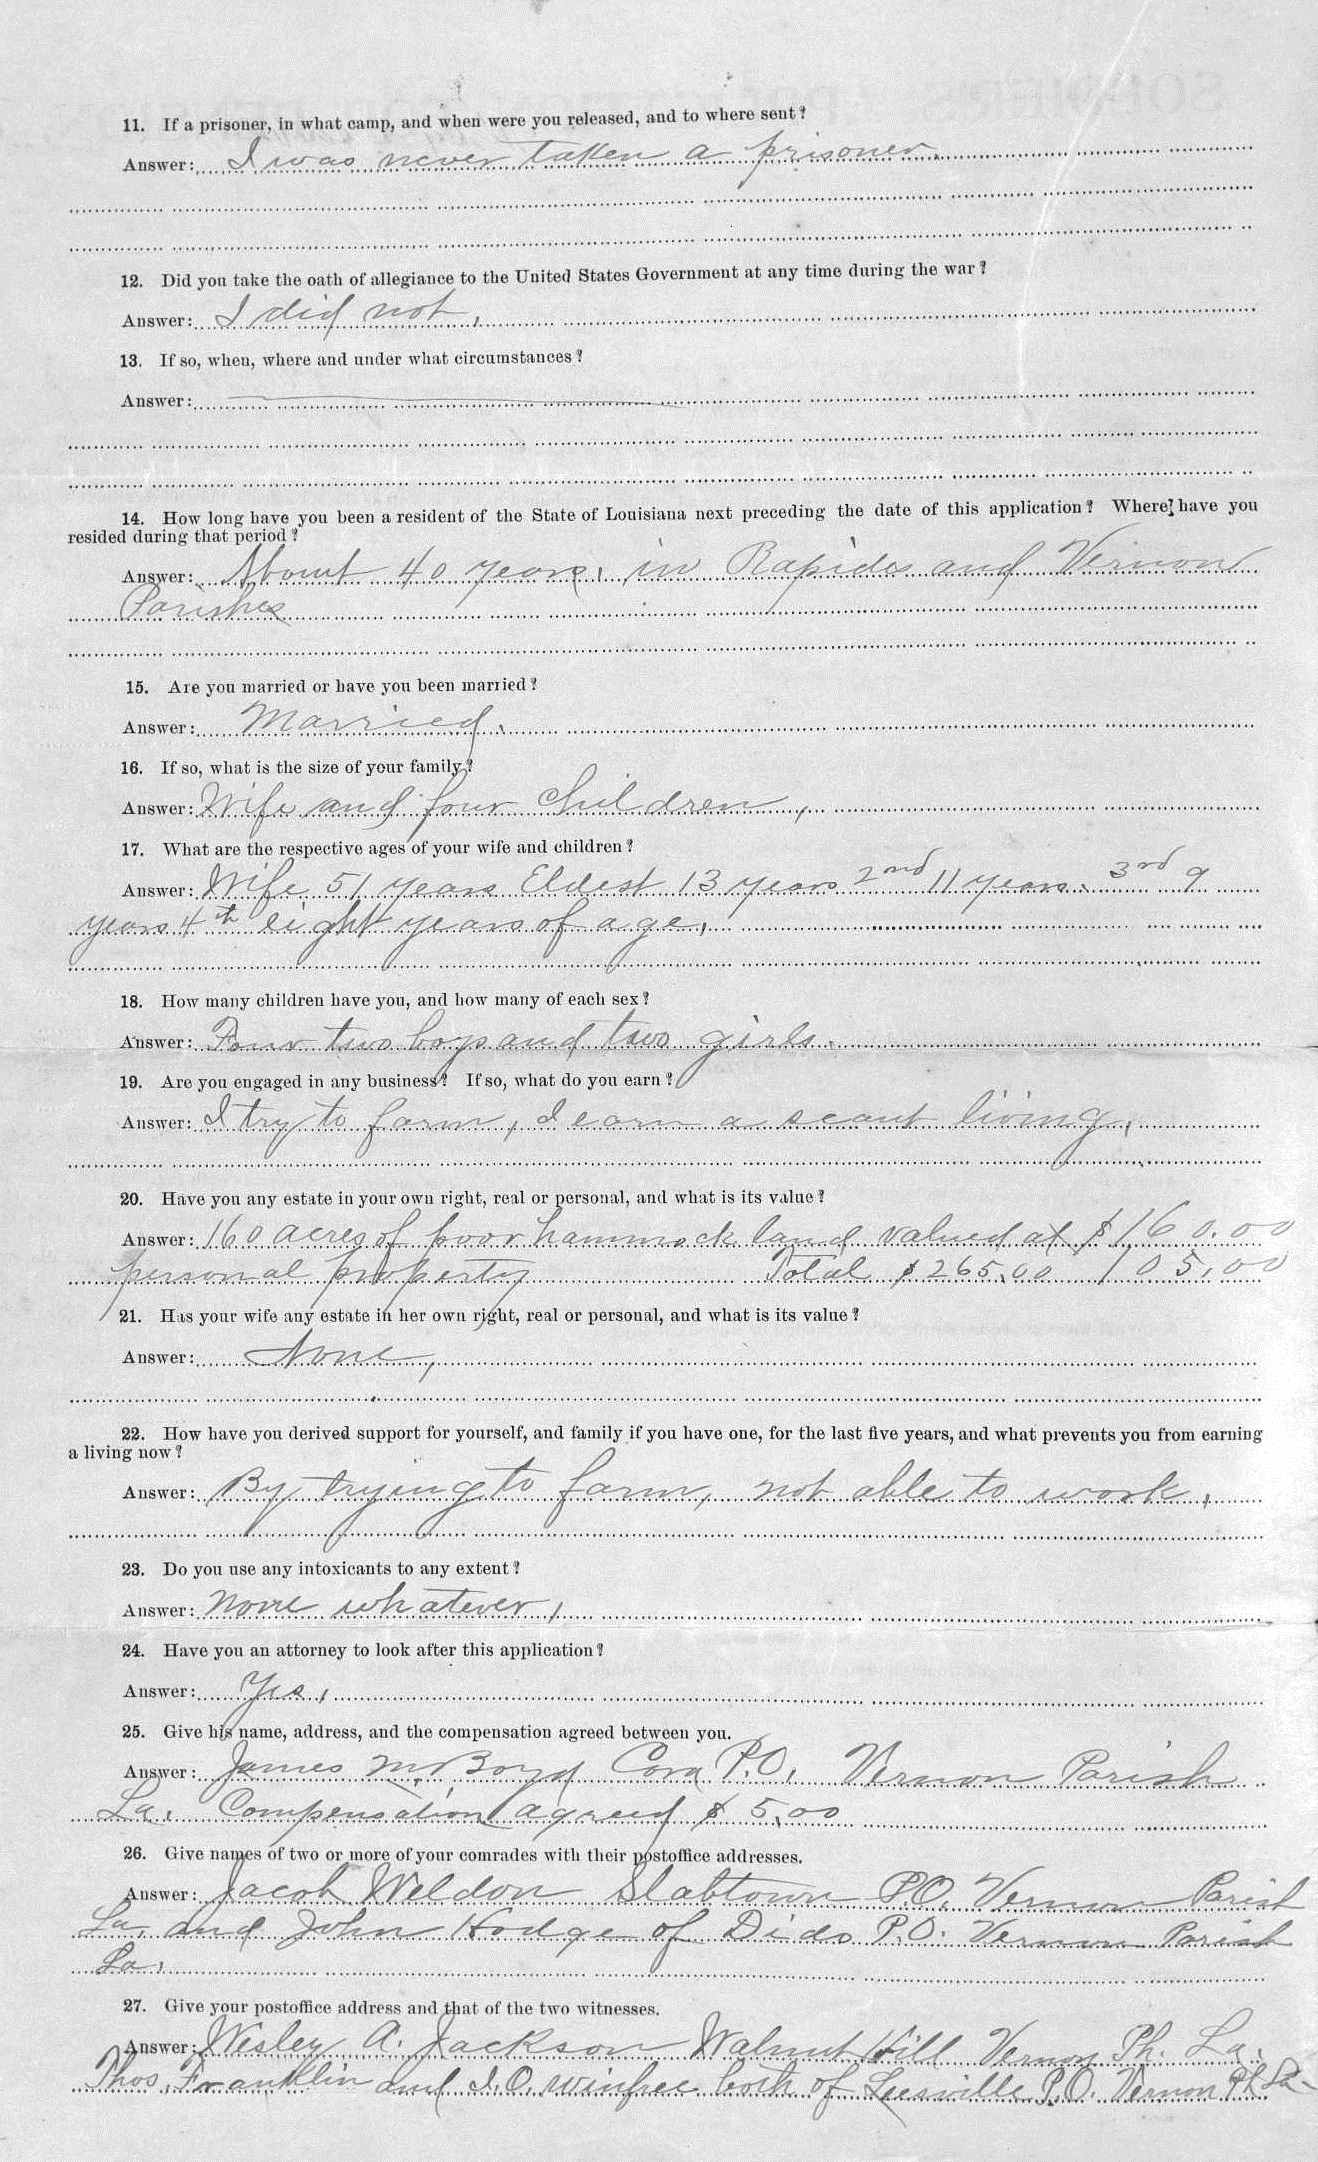 11. If a prisoner, in what camp, and when were you released, and to where sent?
Answer: I was never taken a prisoner.
12. Did you take the oath of allegiance to the United States Government at any time during the war?
Answer: I did not,
13. If so, when, where and under what circumstances?
Answer:
14. How long have you been a resident of the State of Louisiana next preceding the date of this application? Where have you
resided during that period?
Answer: About 40 years, in Rapides and Vernon
Parishes
15. Are you married or have you been married?
Answer: Married.
16. If so, what is the size of your family?
Answer: Wife and four children,
17. What are the respective ages of your wife and children?
Answer: Wife 51 years Eldest 13 years 2nd 11 years. 3rd 9
years 4th eight years of age,
18. How many children have you, and how many of each sex?
Answer: Four two boys and two girls.
19. Are you engaged in any business? If so, what do you earn?
Answer: I try to farm, I earn a scant living,
20. Have you any estate in your own right, real or personal, and what is its value?
Answer: 160 acres of poor hammock land valued at $160.00
personal property Total $265.00 105.00
21. Has your wife any estate in her own right, real or personal, and what is its value?
Answer: None,
22. How have you derived support for yourself, and family if you have one, for the last five years, and what prevents you from earning
a living now?
Answer: By trying to farm, not able to work,
23. Do you use any intoxicants to any extent?
Answer: none whatever,
24. Have you an attorney to look after this application?
Answer: Yes,
25. Give his name, address, and the compensation agreed between you.
Answer: James M. Boyd Cora P.O. Vernon Parish
La. Compensation agreed $5.00
26. Give names of two or more of your comrades with their postoffice addresses.
Answer: Jacob Weldon Slabtown P.O. Vernon Parish
La. and John Hodge of Dido P.O. Vernon Parish
La.
27. Give your postoffice address and that of the two witnesses.
Answer: Wesley A. Jackson Walnut Hill Vernon Ph. La.
Thos. Franklin and I.O. Winfree both of Leesville P.O. Vernon Ph La.